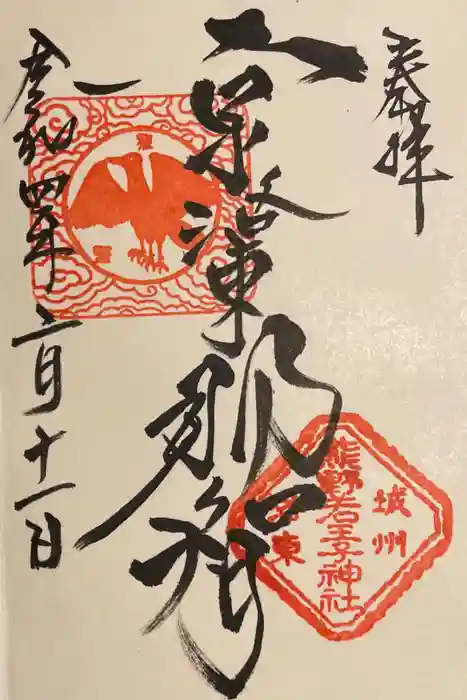 奉拝
京洛東那智
令和四年二月十一日
城州
熊野若王子神社
東